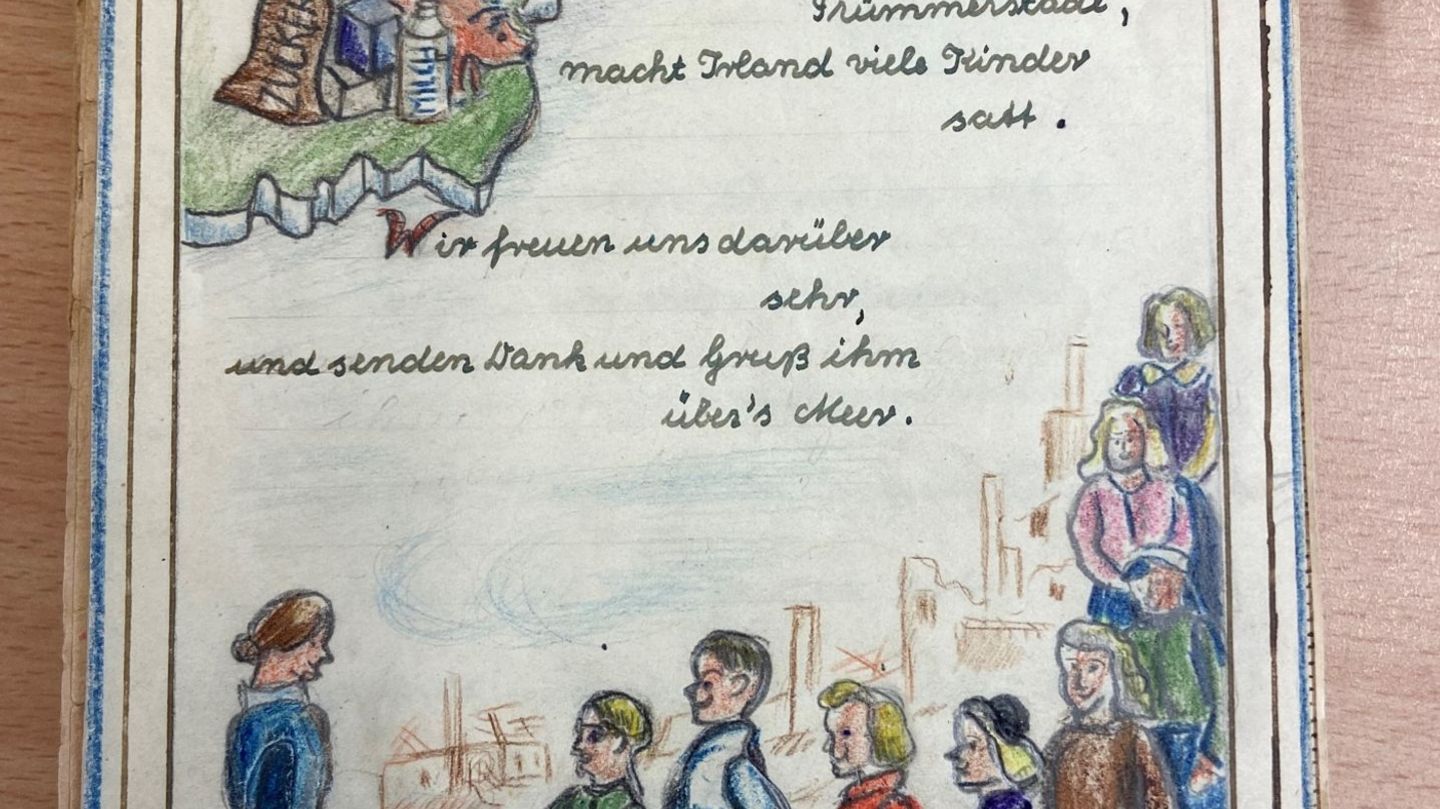 ZUCKER
MILCH
Trümmerstadt,
macht Irland viele Kinder
satt.
Wir freuen uns darüber
sehr,
und senden Dank und Gruß ihm
über's Meer.